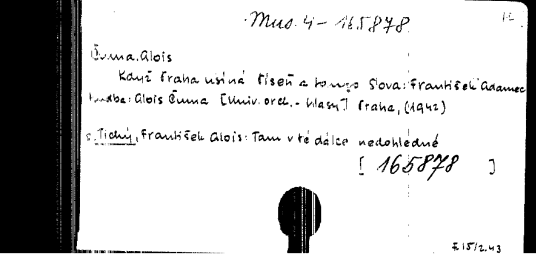 Mus. 4 - 165878
Čuma, Alois
Když Praha usíná Píseň a tango Slova: František Adamec
hudba: Alois Čuma [Univ. orch. - hlasy] Praha, (1942)
s. Tichý, František Alois: Tam v té dálce nedohledné
[ 165878 ]